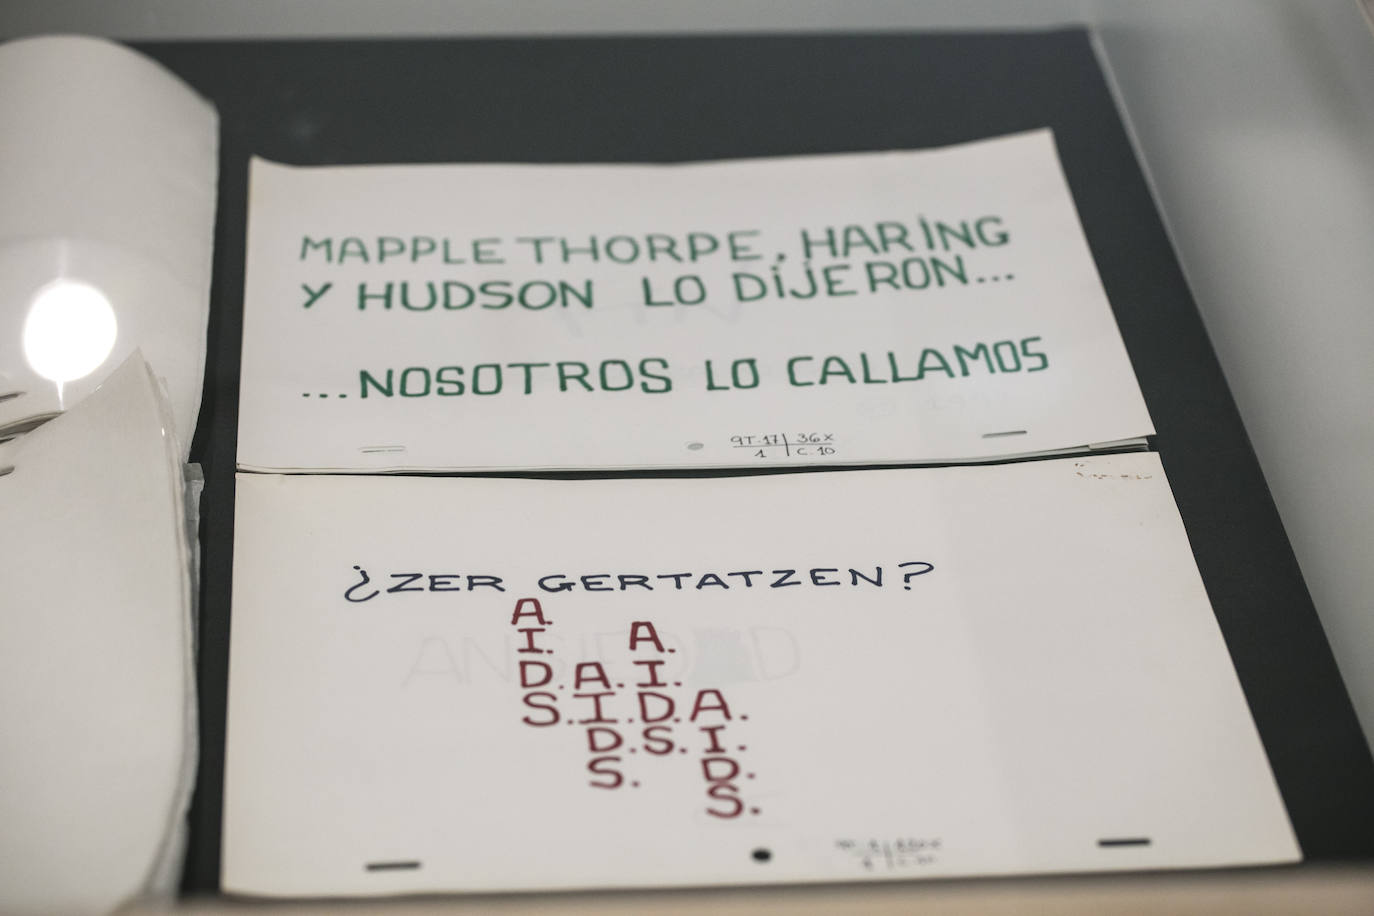 MAPPLETHORPE, HARING
Y HUDSON LO DIJERON...
...NOSOTROS LO CALLAMOS
9T.17 36X
1 C.10
¿ZER GERTATZEN?
A.
I. A.
D. A. I.
S. I. D. A.
D. S. I.
S. D.
S.